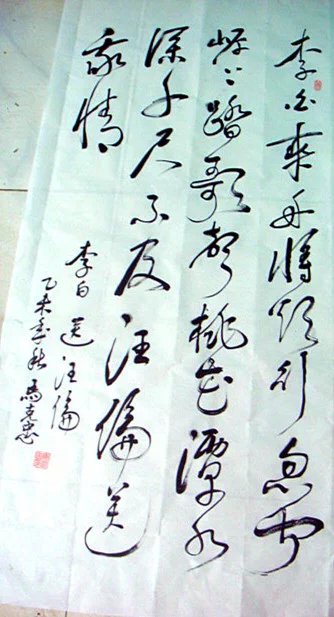 李白乘舟將欲行忽聞
岸上踏歌聲桃花潭水
深千尺不及汪倫送
我情
李白 送汪倫
乙未秋 馬克忠